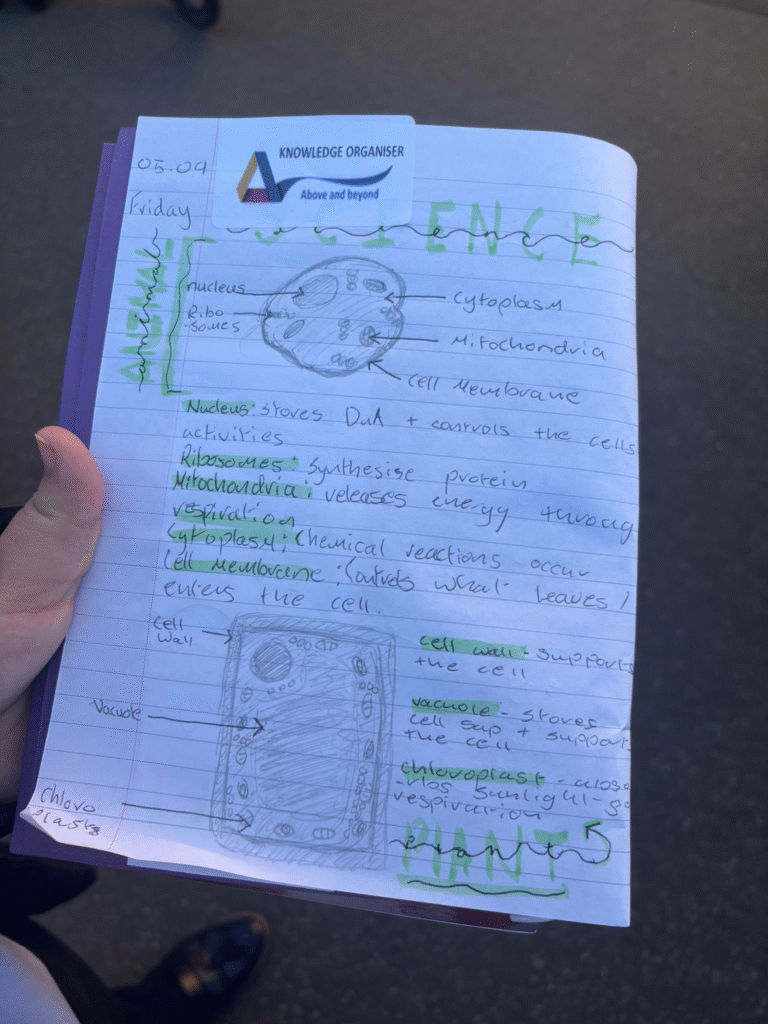 05.09
KNOWLEDGE ORGANISER
Above and beyond
Friday
SCIENCE
science
ANIMAL
animal
nucleus
Ribo
-somes
Cytoplasm
Mitochondria
Cell Membrane
Nucleus: stores DNA + controls the cells
activities
Ribosomes: Synthesise protein
Mitochondria: releases energy throug
respiration
Cytoplasm: Chemical reactions occur
Cell Membrane: Controls what leaves /
enters the cell.
Cell
Wall
Cell wall - supports
the cell
Vacuole
vacuole - stores
cell sap + support
the cell
Chloro
plasts
chloroplast -
sunlight
respiration
PlANT
plant